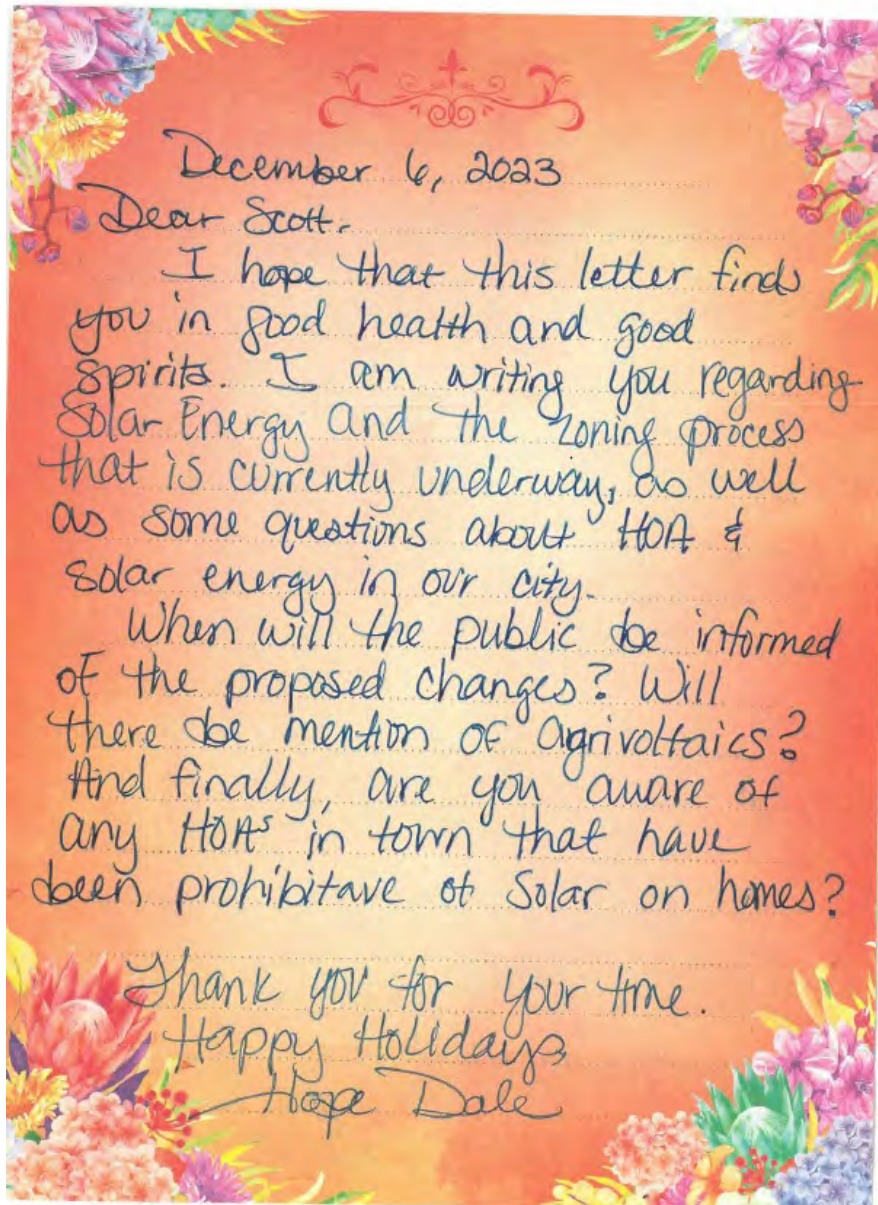 December 6, 2023
Dear Scott.
I hope that this letter finds
you in good health and good
spirits. I am writing you regarding
Solar Energy and the zoning process
that is currently underway, as well
as some questions about HOA &
solar energy in our city.
When will the public be informed
of the proposed changes? Will
there be mention of agrivoltaics?
And finally, are you aware of
any HOAs in town that have
been prohibitave of Solar on homes?
Thank you for your time.
Happy Holidays
Hope Dale